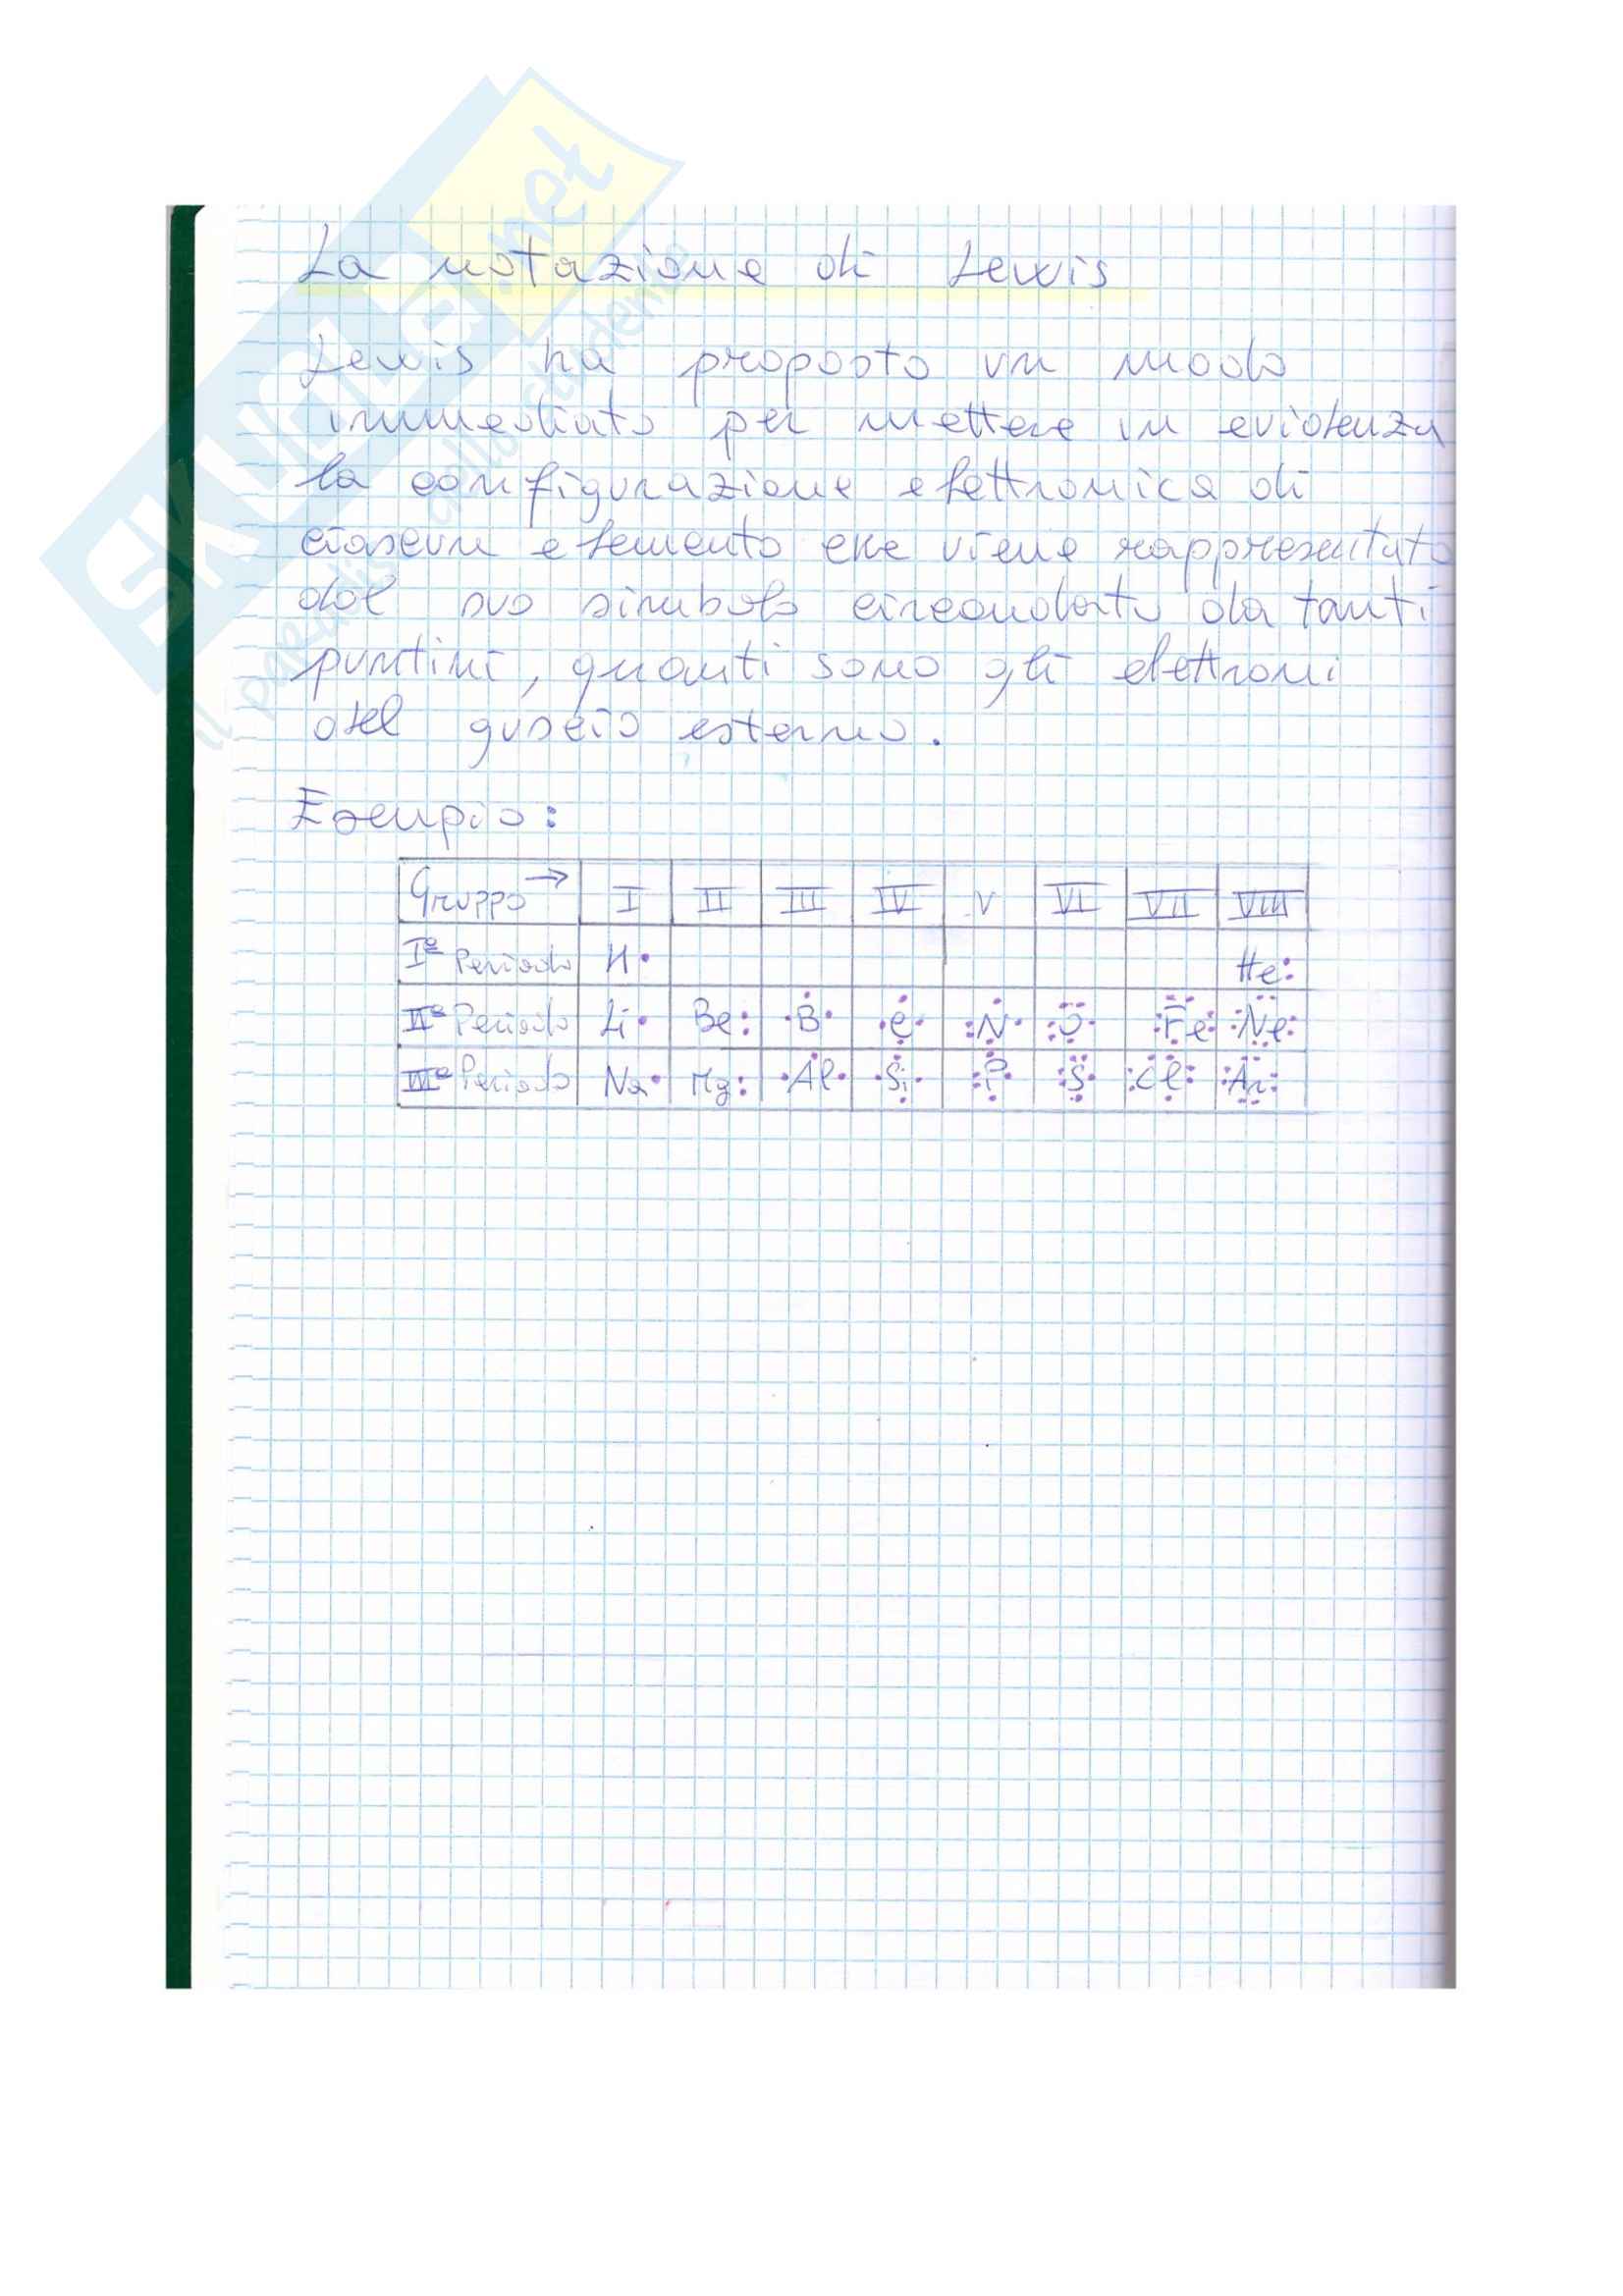 SKUOLA.net
il paradiso dello studente
La notazione di Lewis
Lewis ha proposto un modo
immediato per mettere in evidenza
la configurazione elettronica di
ciascun elemento che viene rappresentato
dal suo simbolo circondato da tanti
puntini, quanti sono gli elettroni
del guscio esterno.
Esempio:
Gruppo → I II III IV V VI VII VIII
I° Periodo H• He:
II° Periodo Li• Be: B C N O Fe Ne
III° Periodo Na• Mg: Al Si P S Cl Ar